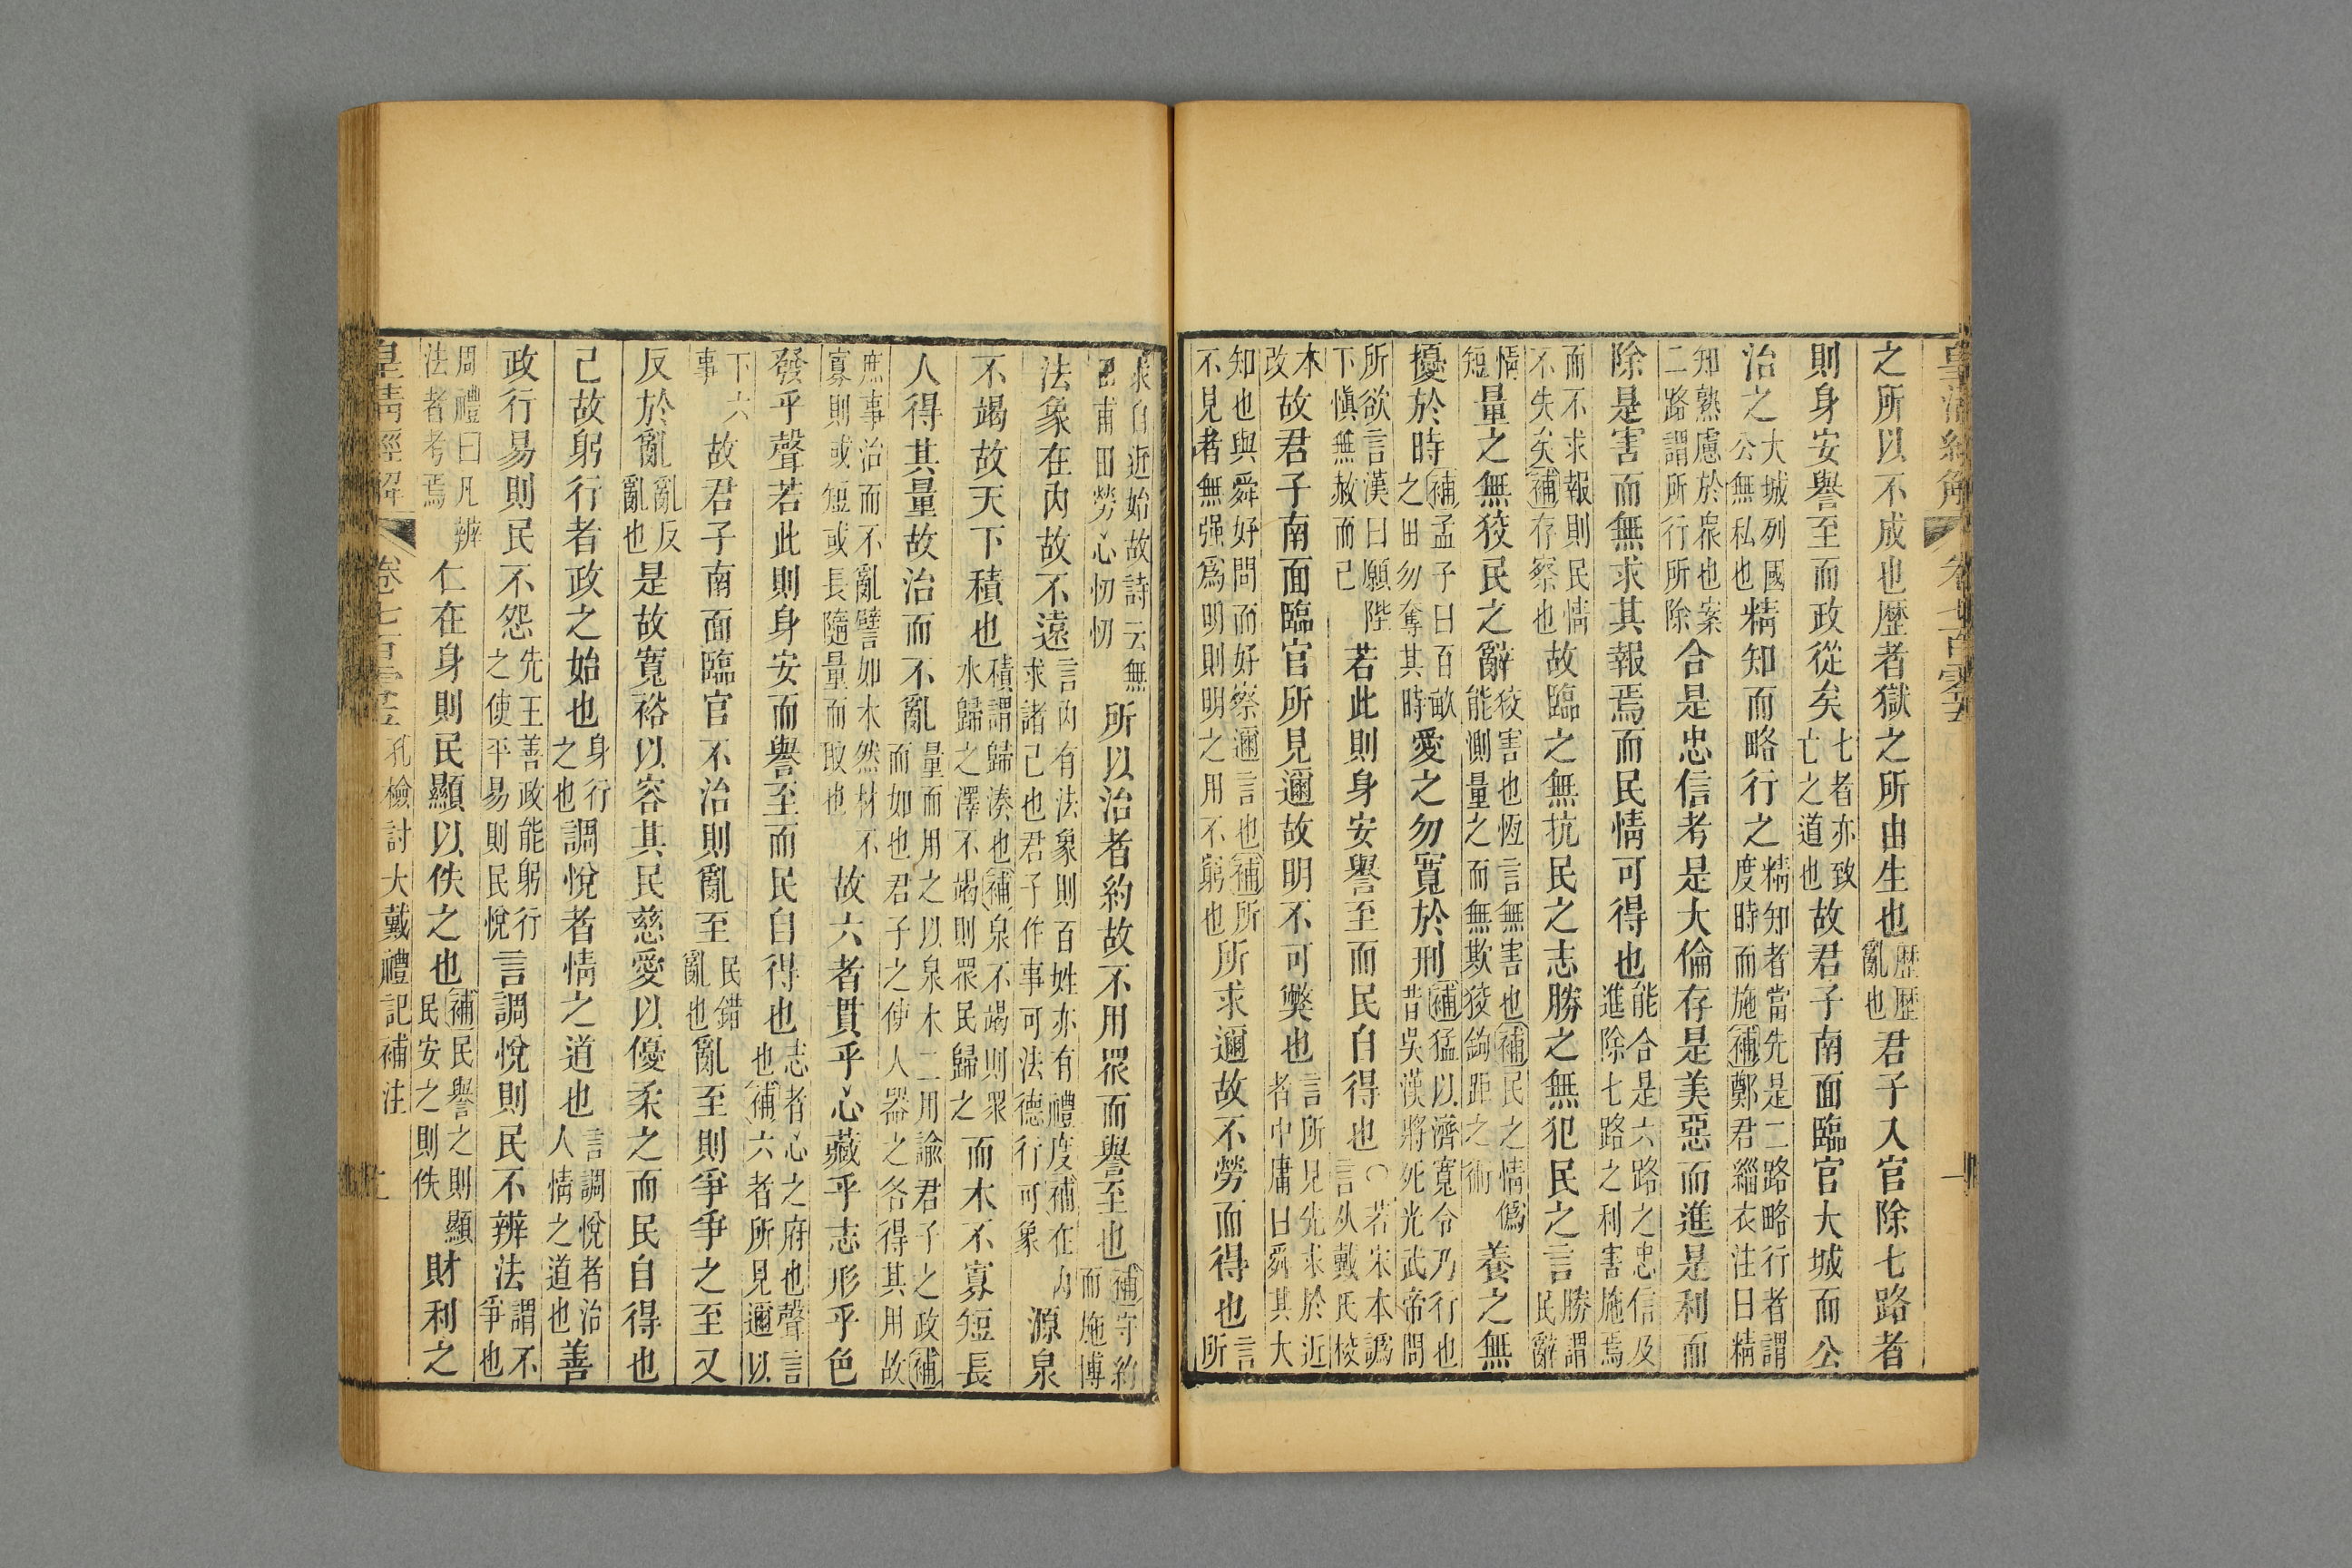 皇清經解 卷七百零五
之所以不成也歷者獄之所由生也歷歷亂也君子入官除七路者
則身安譽至而政從矣七者亦致亡之道也故君子南面臨官大城而公
治之大城列國公無私也精知而略行之精知者當先是二路略行者謂度時而施補鄭君緇衣注曰精
知熟慮於衆也案二路謂所行所除合是忠信考是大倫存是美惡而進是利而
除是害而無求其報焉而民情可得也能合是六路之忠信及進除七路之利害施焉
而不求報則民情不失矣補存察也故臨之無抗民之志勝之無犯民之言勝謂民辭
情短量之無狡民之辭狡害也恆言無害也補民之情僞能測量之而無欺狡鉤距之術養之無
擾於時補孟子曰百畝之田勿奪其時愛之勿寬於刑補猛以濟寬令乃行也昔吳漢將死光武帝問
所欲言漢曰願陛下愼無赦而已若此則身安譽至而民自得也○若宋本譌言从戴氏校
本改故君子南面臨官所見邇故明不可獘也言所見先求於近者中庸曰舜其大
知也與舜好問而好察邇言也補所不見者無强爲明則明之用不窮也所求邇故不勞而得也言所
求自近始故詩云無田甫田勞心忉忉所以治者約故不用眾而譽至也補守約而施博
法象在內故不遠言內有法象則百姓亦有禮度補在內求諸己也君子作事可法德行可象源泉
不竭故天下積也積謂歸湊也補泉不竭則眾水歸之澤不竭則眾民歸之而木不寡短長
人得其量故治而不亂量而用之以泉木二用諭君子之政補而如也君子之使人器之各得其用故
庶事治而不亂譬如木然材不寡則或短或長隨量而取也故六者貫乎心藏乎志形乎色
發乎聲若此則身安而譽至而民自得也志者心之府也聲言也補六者所見邇以
下六事故君子南面臨官不治則亂至民錯亂也亂至則爭爭之至又
反於亂亂反亂也是故寬裕以容其民慈愛以優柔之而民自得也
己故躬行者政之始也身行之也調悅者情之道也言調悅者治人情之道也善
政行易則民不怨先王善政能躬行之使平易則民悅言調悅則民不辨法謂不爭也
周禮曰凡辨法者考焉仁在身則民顯以佚之也補民譽之則顯民安之則佚財利之
皇清經解 卷七百零五 孔檢討大戴禮記補注 十一